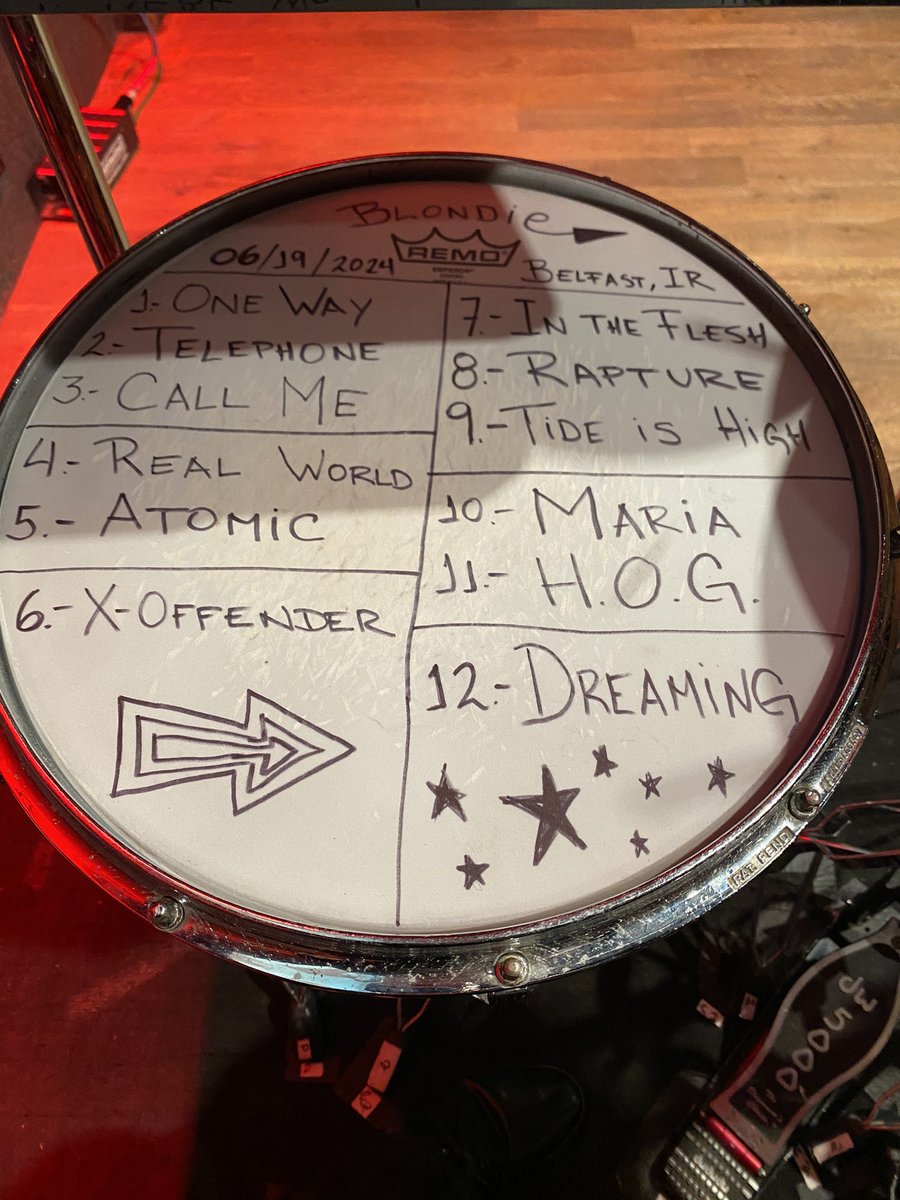 BLONDiE
REMO
EMPEROR
06/19/2024
BELFAST, IR
1.- ONE WAY
2.- TELEPHONE
3.- CALL ME
4.- REAL WORLD
5.- ATOMiC
6.- X-OFFENDER
7.- IN THE FLESH
8.- RAPTURE
9.- TIDE iS HiGH
10.- MARiA
11.- H.O.G.
12.- DREAMiNG
PAT. PEND